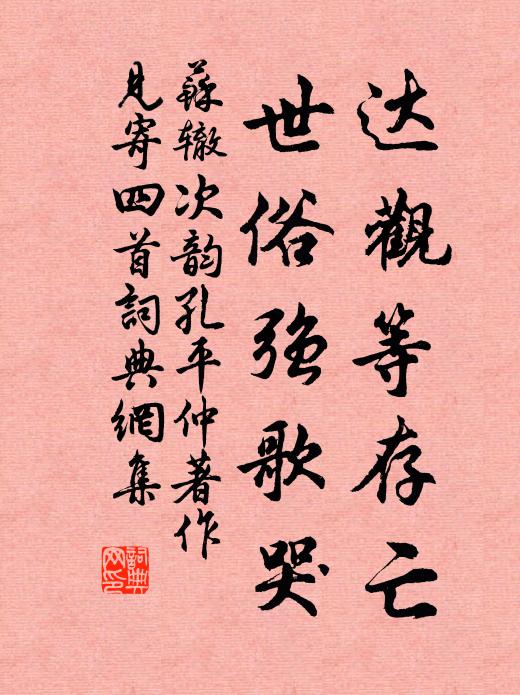 达觀等存亡
世俗強歌哭
蘇辙次韵孔平仲著作
見寄四首詞典網集
詞典网印